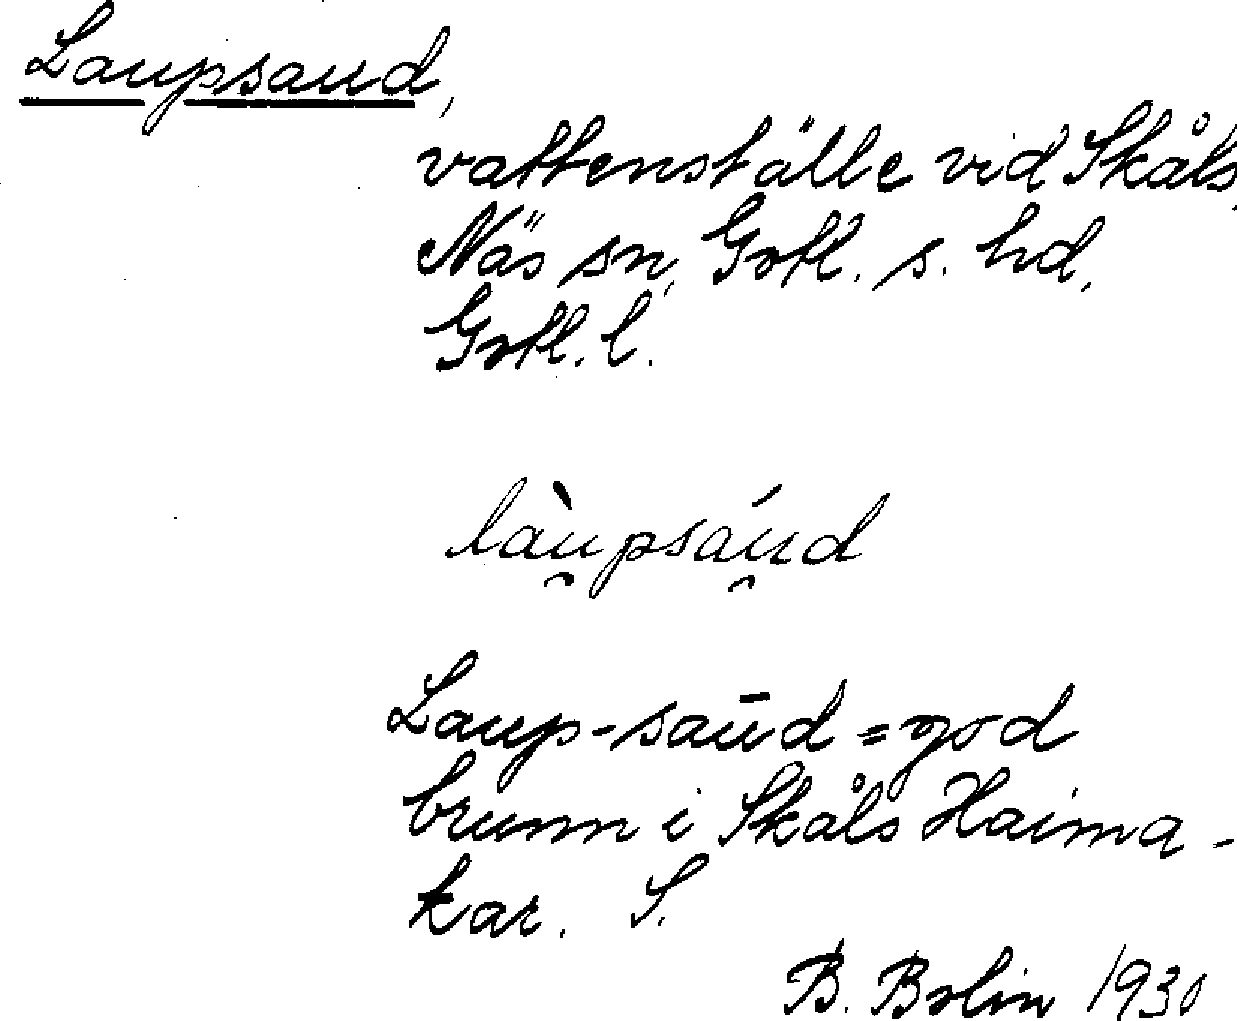 Laupsaud,
vattenställe vid Skåls,
Näs sn, Gotl. s. hd,
Gotl. l.
làu̯psáu̯d
Laup-saūd = god
brunn i Skåls Haima-
kar. S.
B. Bolin 1930